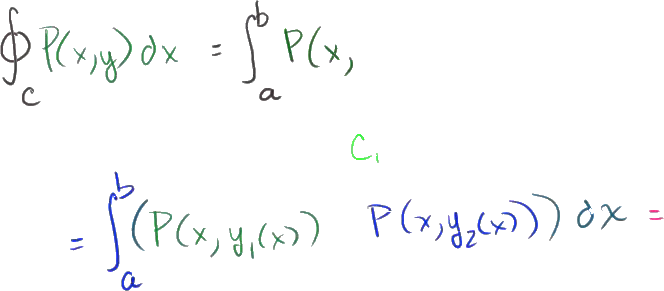 ∮_C P(x,y)dx = ∫_a^b P(x,
C₁
= ∫_a^b (P(x, y₁(x)) P(x, y₂(x))) dx =